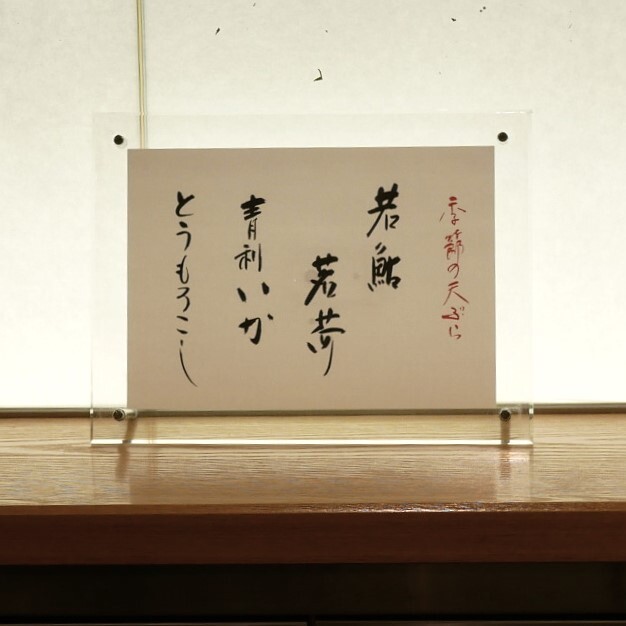 季節の天ぷら
若鮎
茗荷
青利いか
とうもろこし